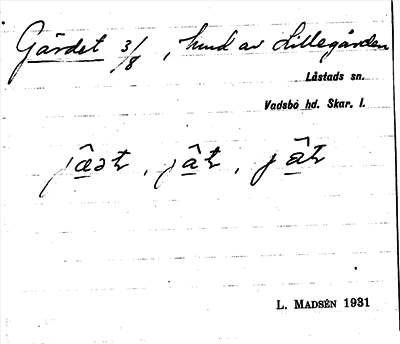 Gärdet 3/8, hmd av Lillegården
Låstads sn.
Vadsbo hd. Skar. l.
jæ̂ət, jât, jât
L. MADSÉN 1931